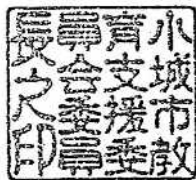 小城市教
育支援委
員会委員
長之印